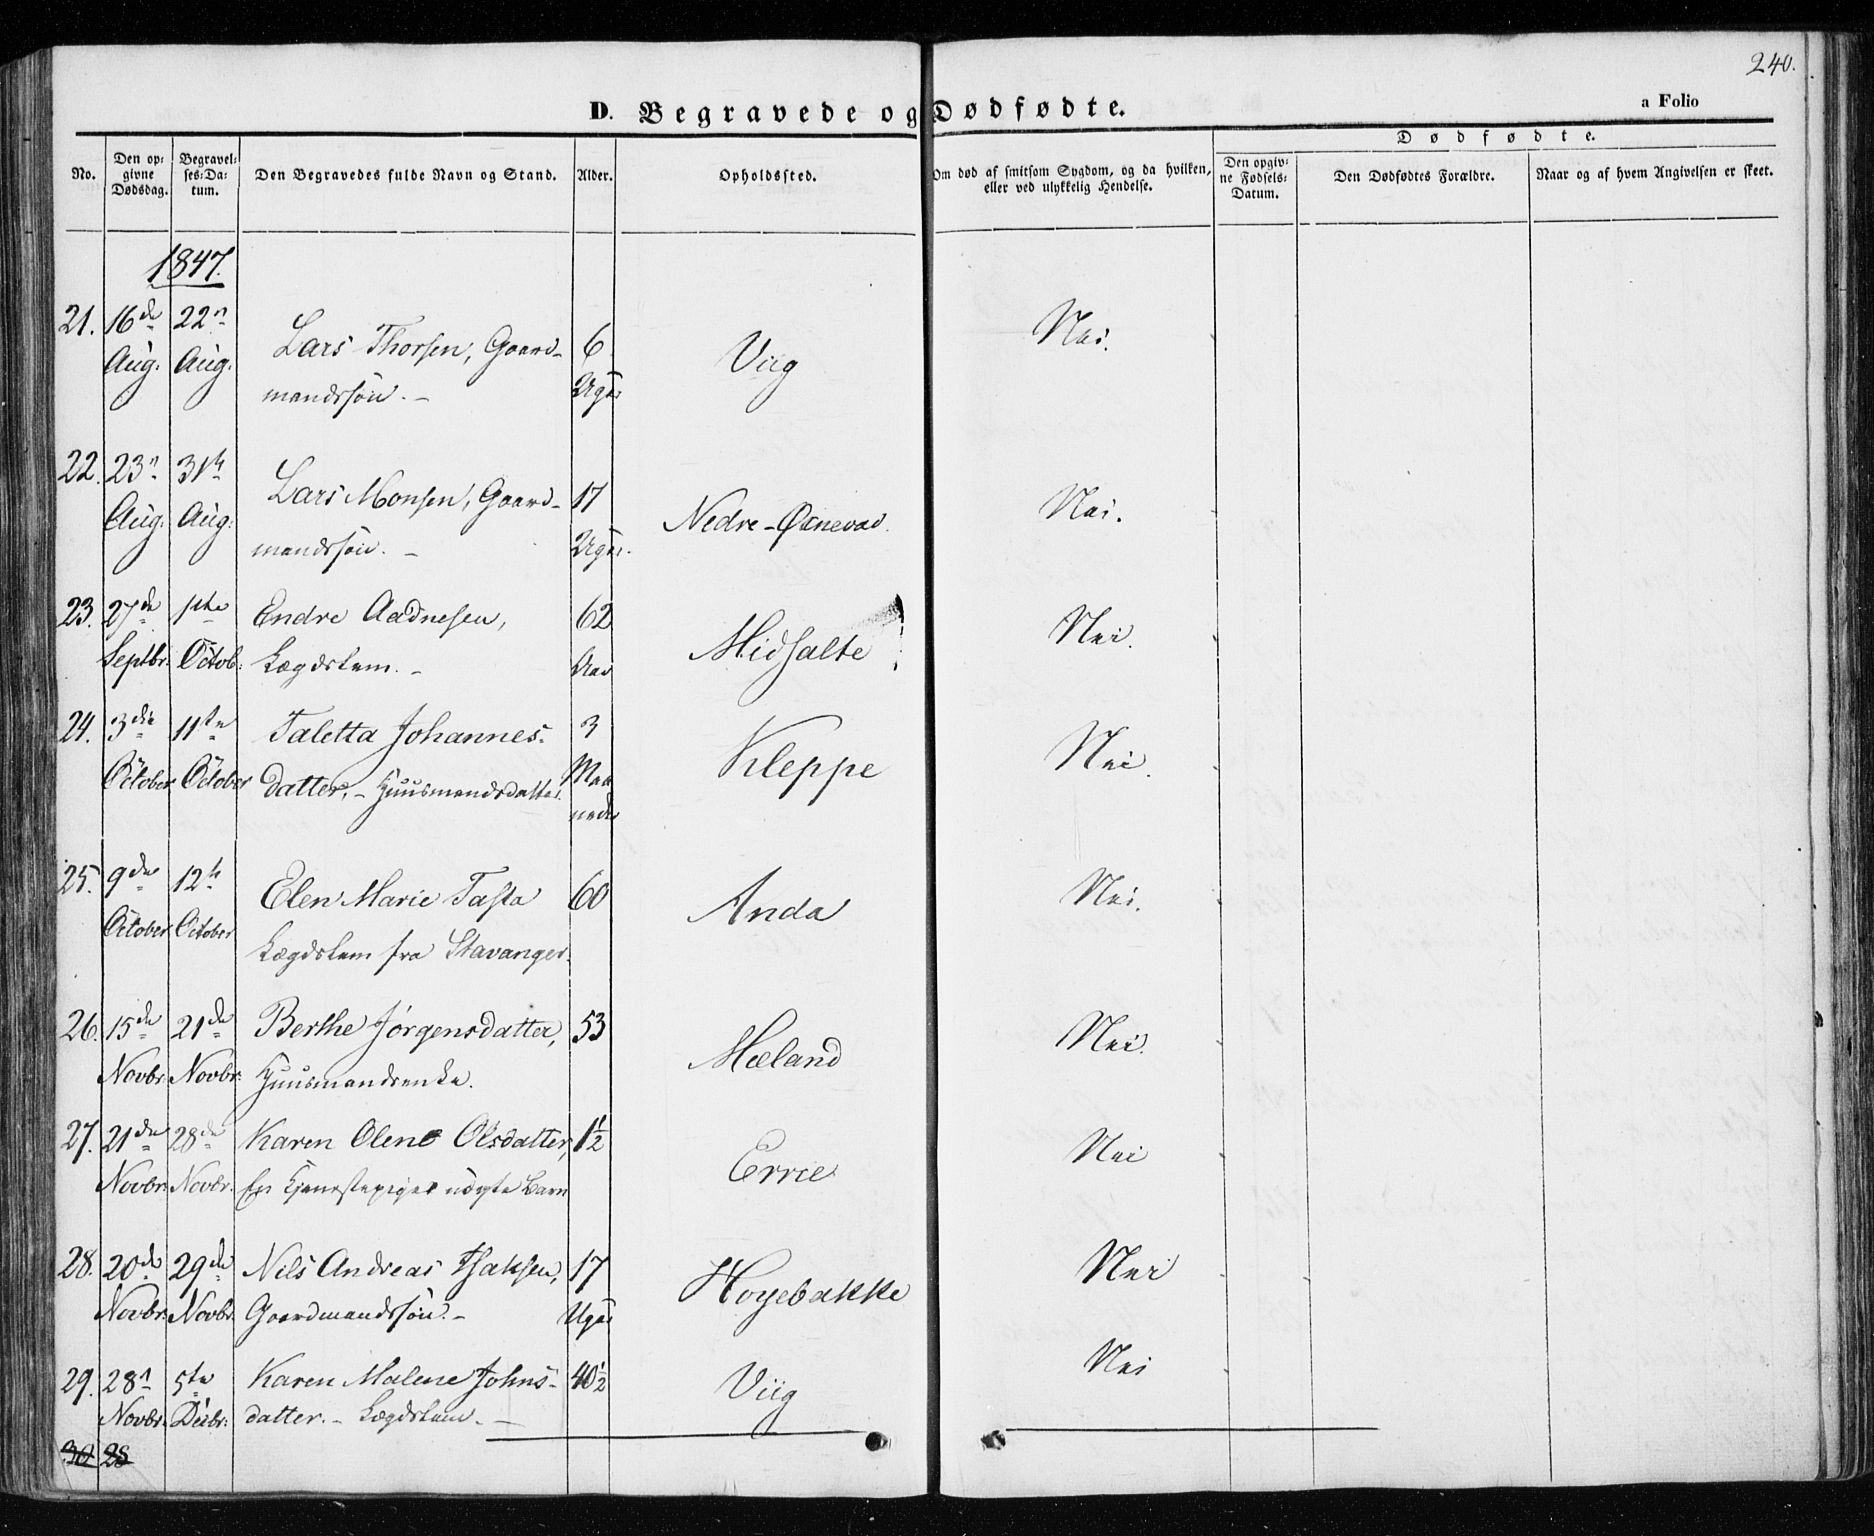 240.
D. Begravede og Dødfødte.
a Folio
No.
Den op=
givne
Dødsdag.
Begravel=
ses=Da=
tum.
Den Begravedes fulde Navn og Stand.
Alder.
Opholdssted.
Om død af smitsom Sygdom, og da hvilken,
eller ved ulykkelig Hendelse.
Dødfødte.
Den opgiv=
ne Fødsels=
Datum.
Den Dødfødtes Forældre.
Naar og af hvem Angivelsen er skeet.
1847.
21. 16de 22n Lars Thorsen, Gaard- 6 Viig Nei.
Aug. Aug. mandssøn. - Uger
22. 23n 31te Lars Monsen, Gaard- 17 Nedre-Øxnevad. Nei.
Aug. Aug. mandssøn. - Uger.
23. 27de 1ste Endre Aadnesen, 62 Midsalte Nei.
Septbr. Octob: Lægdslem. - Aar
24. 3die 11te Taletta Johannes- 3 Kleppe Nei.
October October datter, - Huusmandsdatter. Maa
neder
25. 9de 12te Elen Marie Tasta 60 Anda Nei.
October October Lægdslem fra Stavanger.
26. 15de 21de Berthe Jørgensdatter, 53 Mæland Nei.
Novbr. Novbr: Huusmandsenke.
27. 21de 28de Karen Olene Olsdatter, 1½ Errie Nei
Novbr: Novbr. En Tjenestepiges uægte Barn
28. 20de 29de Nils Andreas Isaksen, 17 Høyebakke Nei
Novbr: Novbr. Gaardmandssøn. - Uger
29. 28n 5te Karen Malene Johns- 40½ Viig Nei
Novbr. Decbr: datter. - Lægdslem. -
30 28